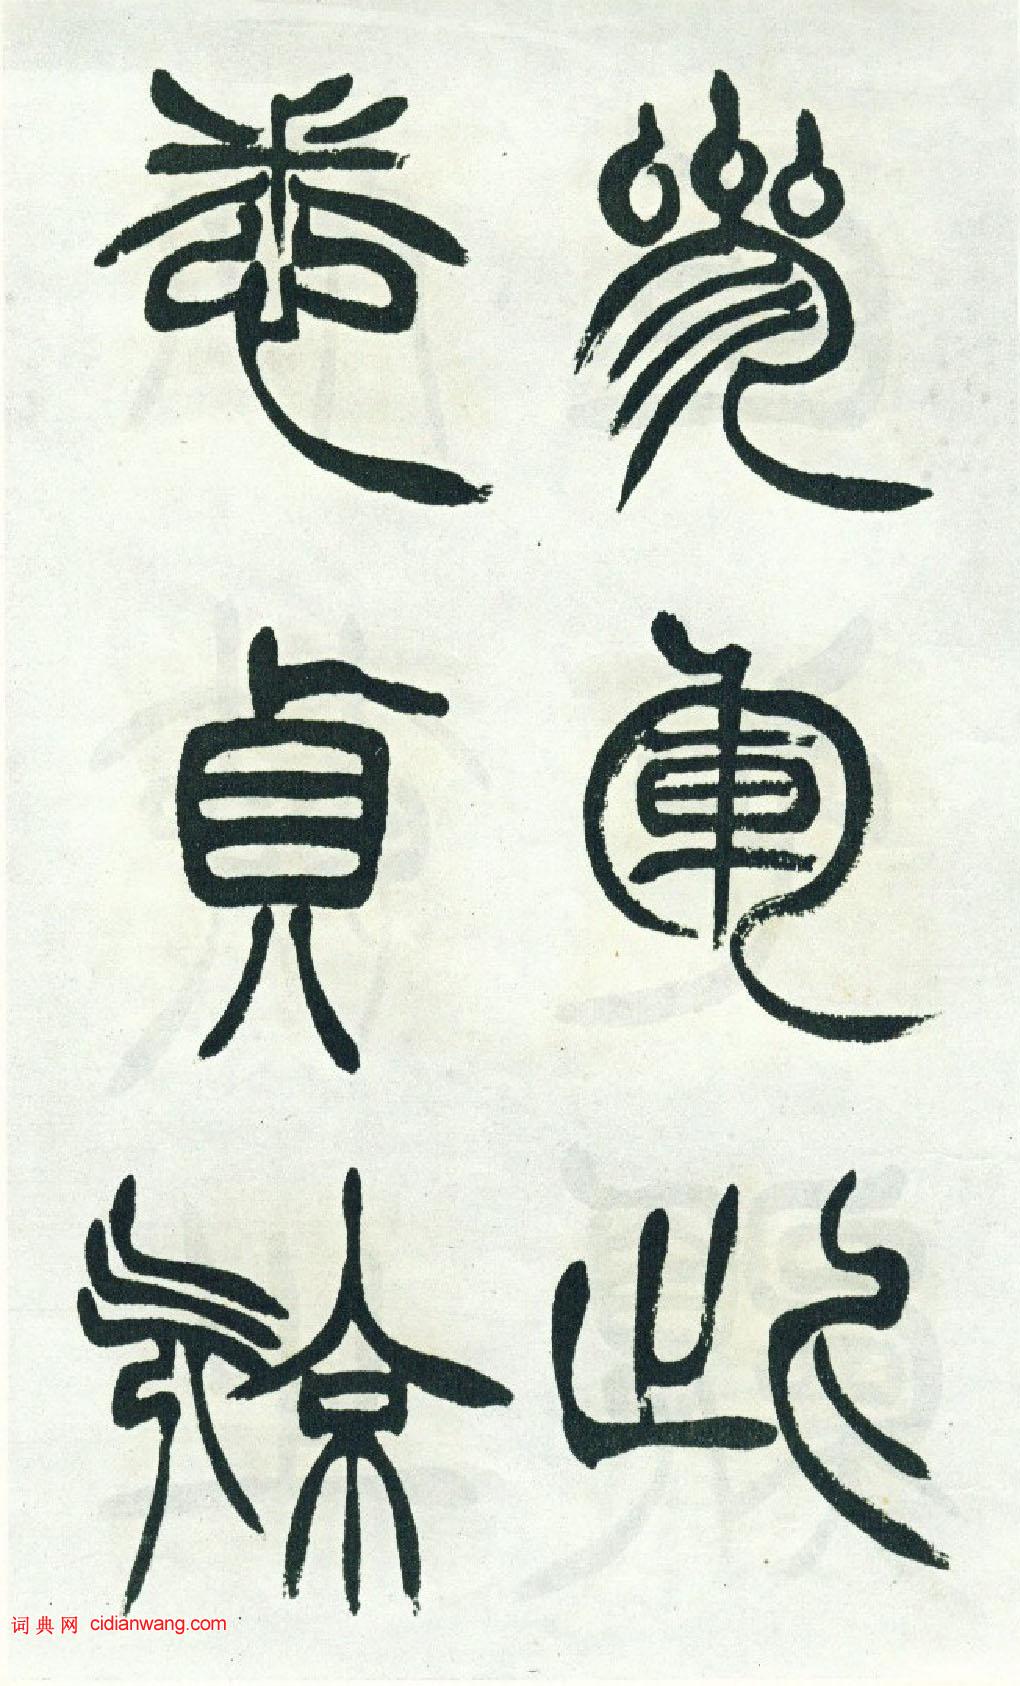 參軍此
卷貞
词典网 cidianwang.com